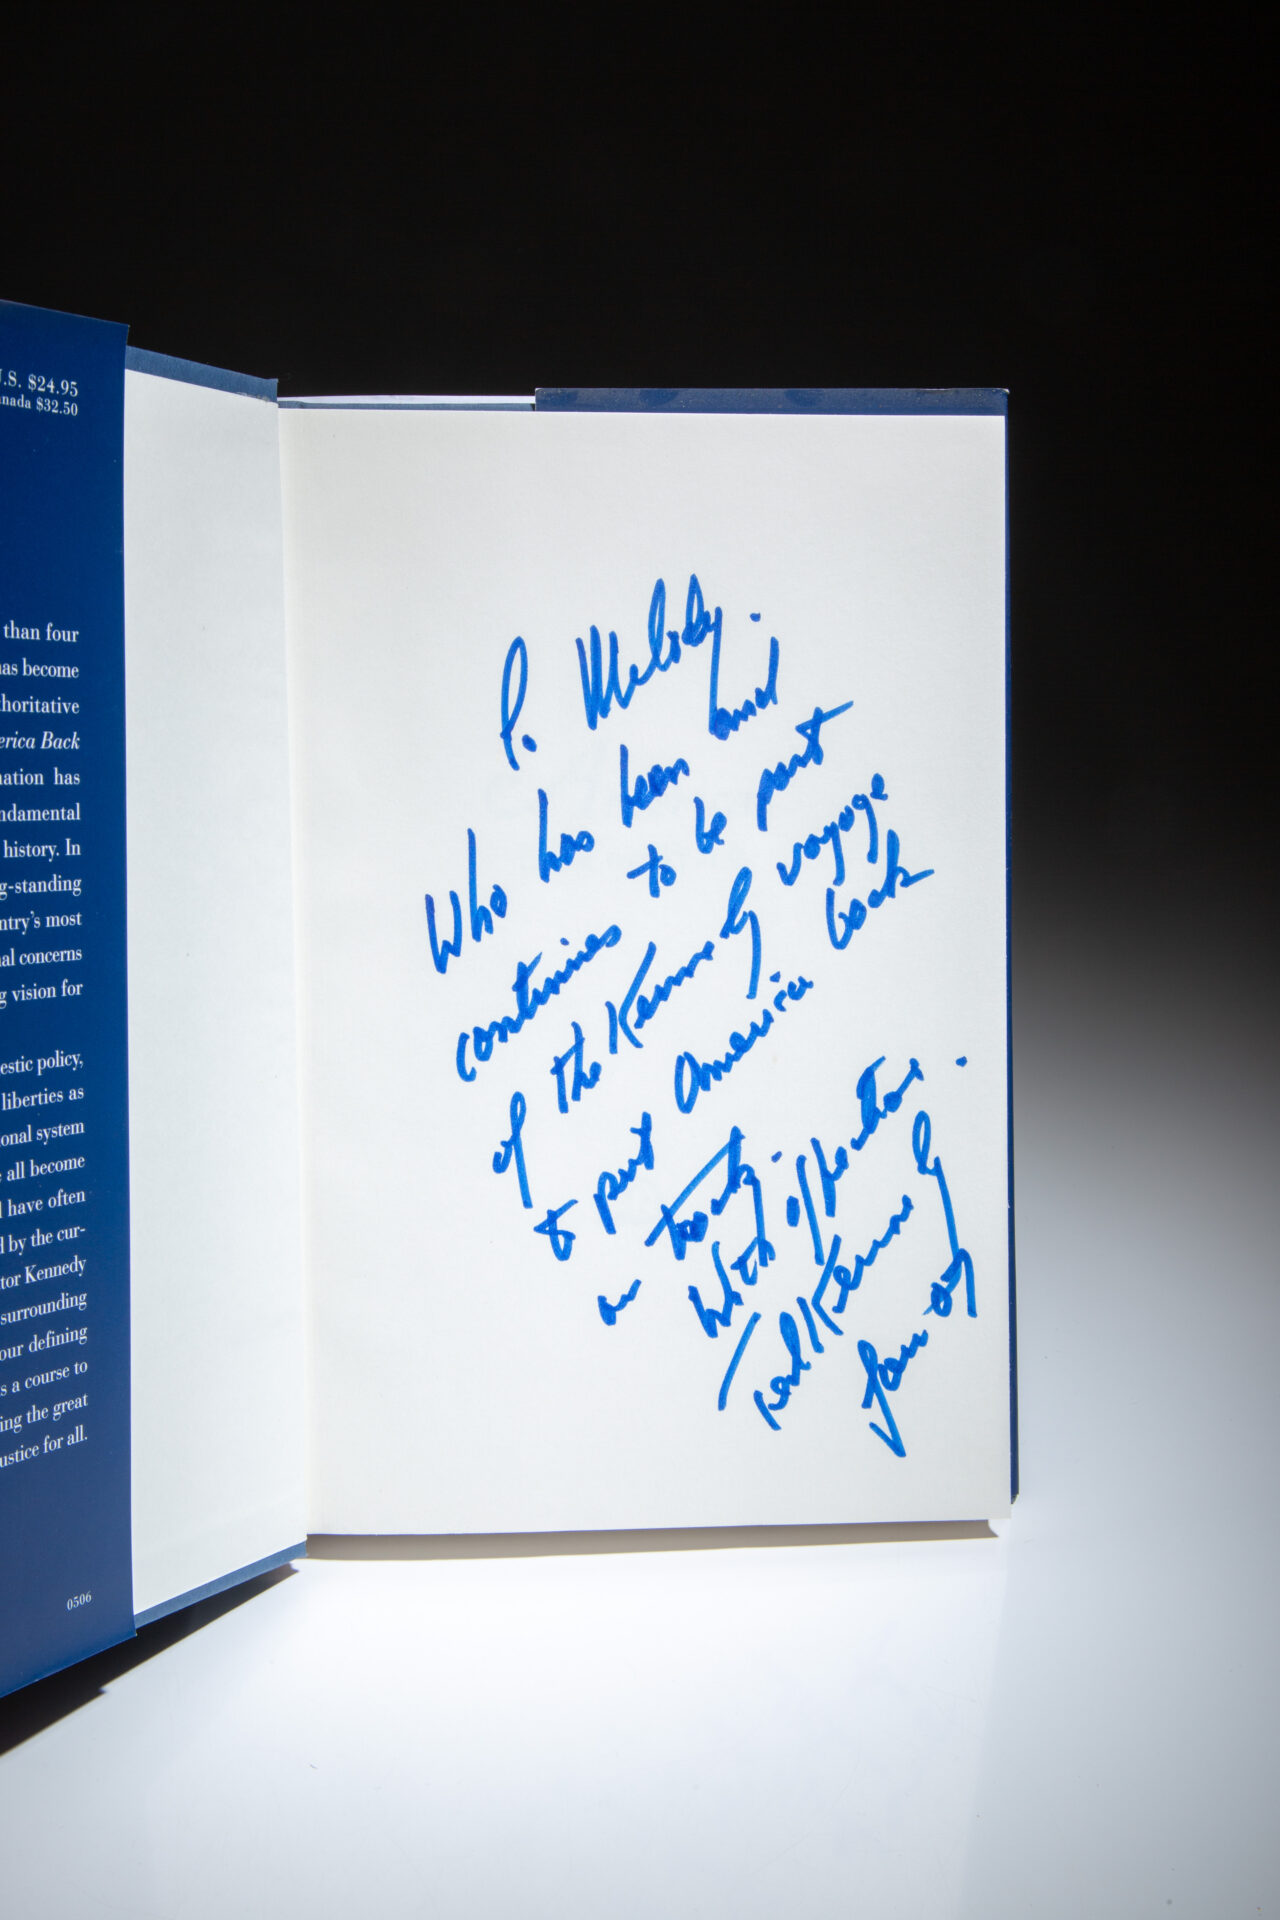 U.S. $24.95
Canada $32.50
than four
has become
authoritative
America Back
nation has
fundamental
history. In
long-standing
country's most
concerns
vision for
domestic policy,
liberties as
system
all become
have often
by the cur-
Senator Kennedy
surrounding
our defining
a course to
the great
justice for all.
0506
Melody.
Who has been and
continues to be part
of the Kennedy voyage
to put America back
on track.
With affection.
Ted Kennedy
Jan 07